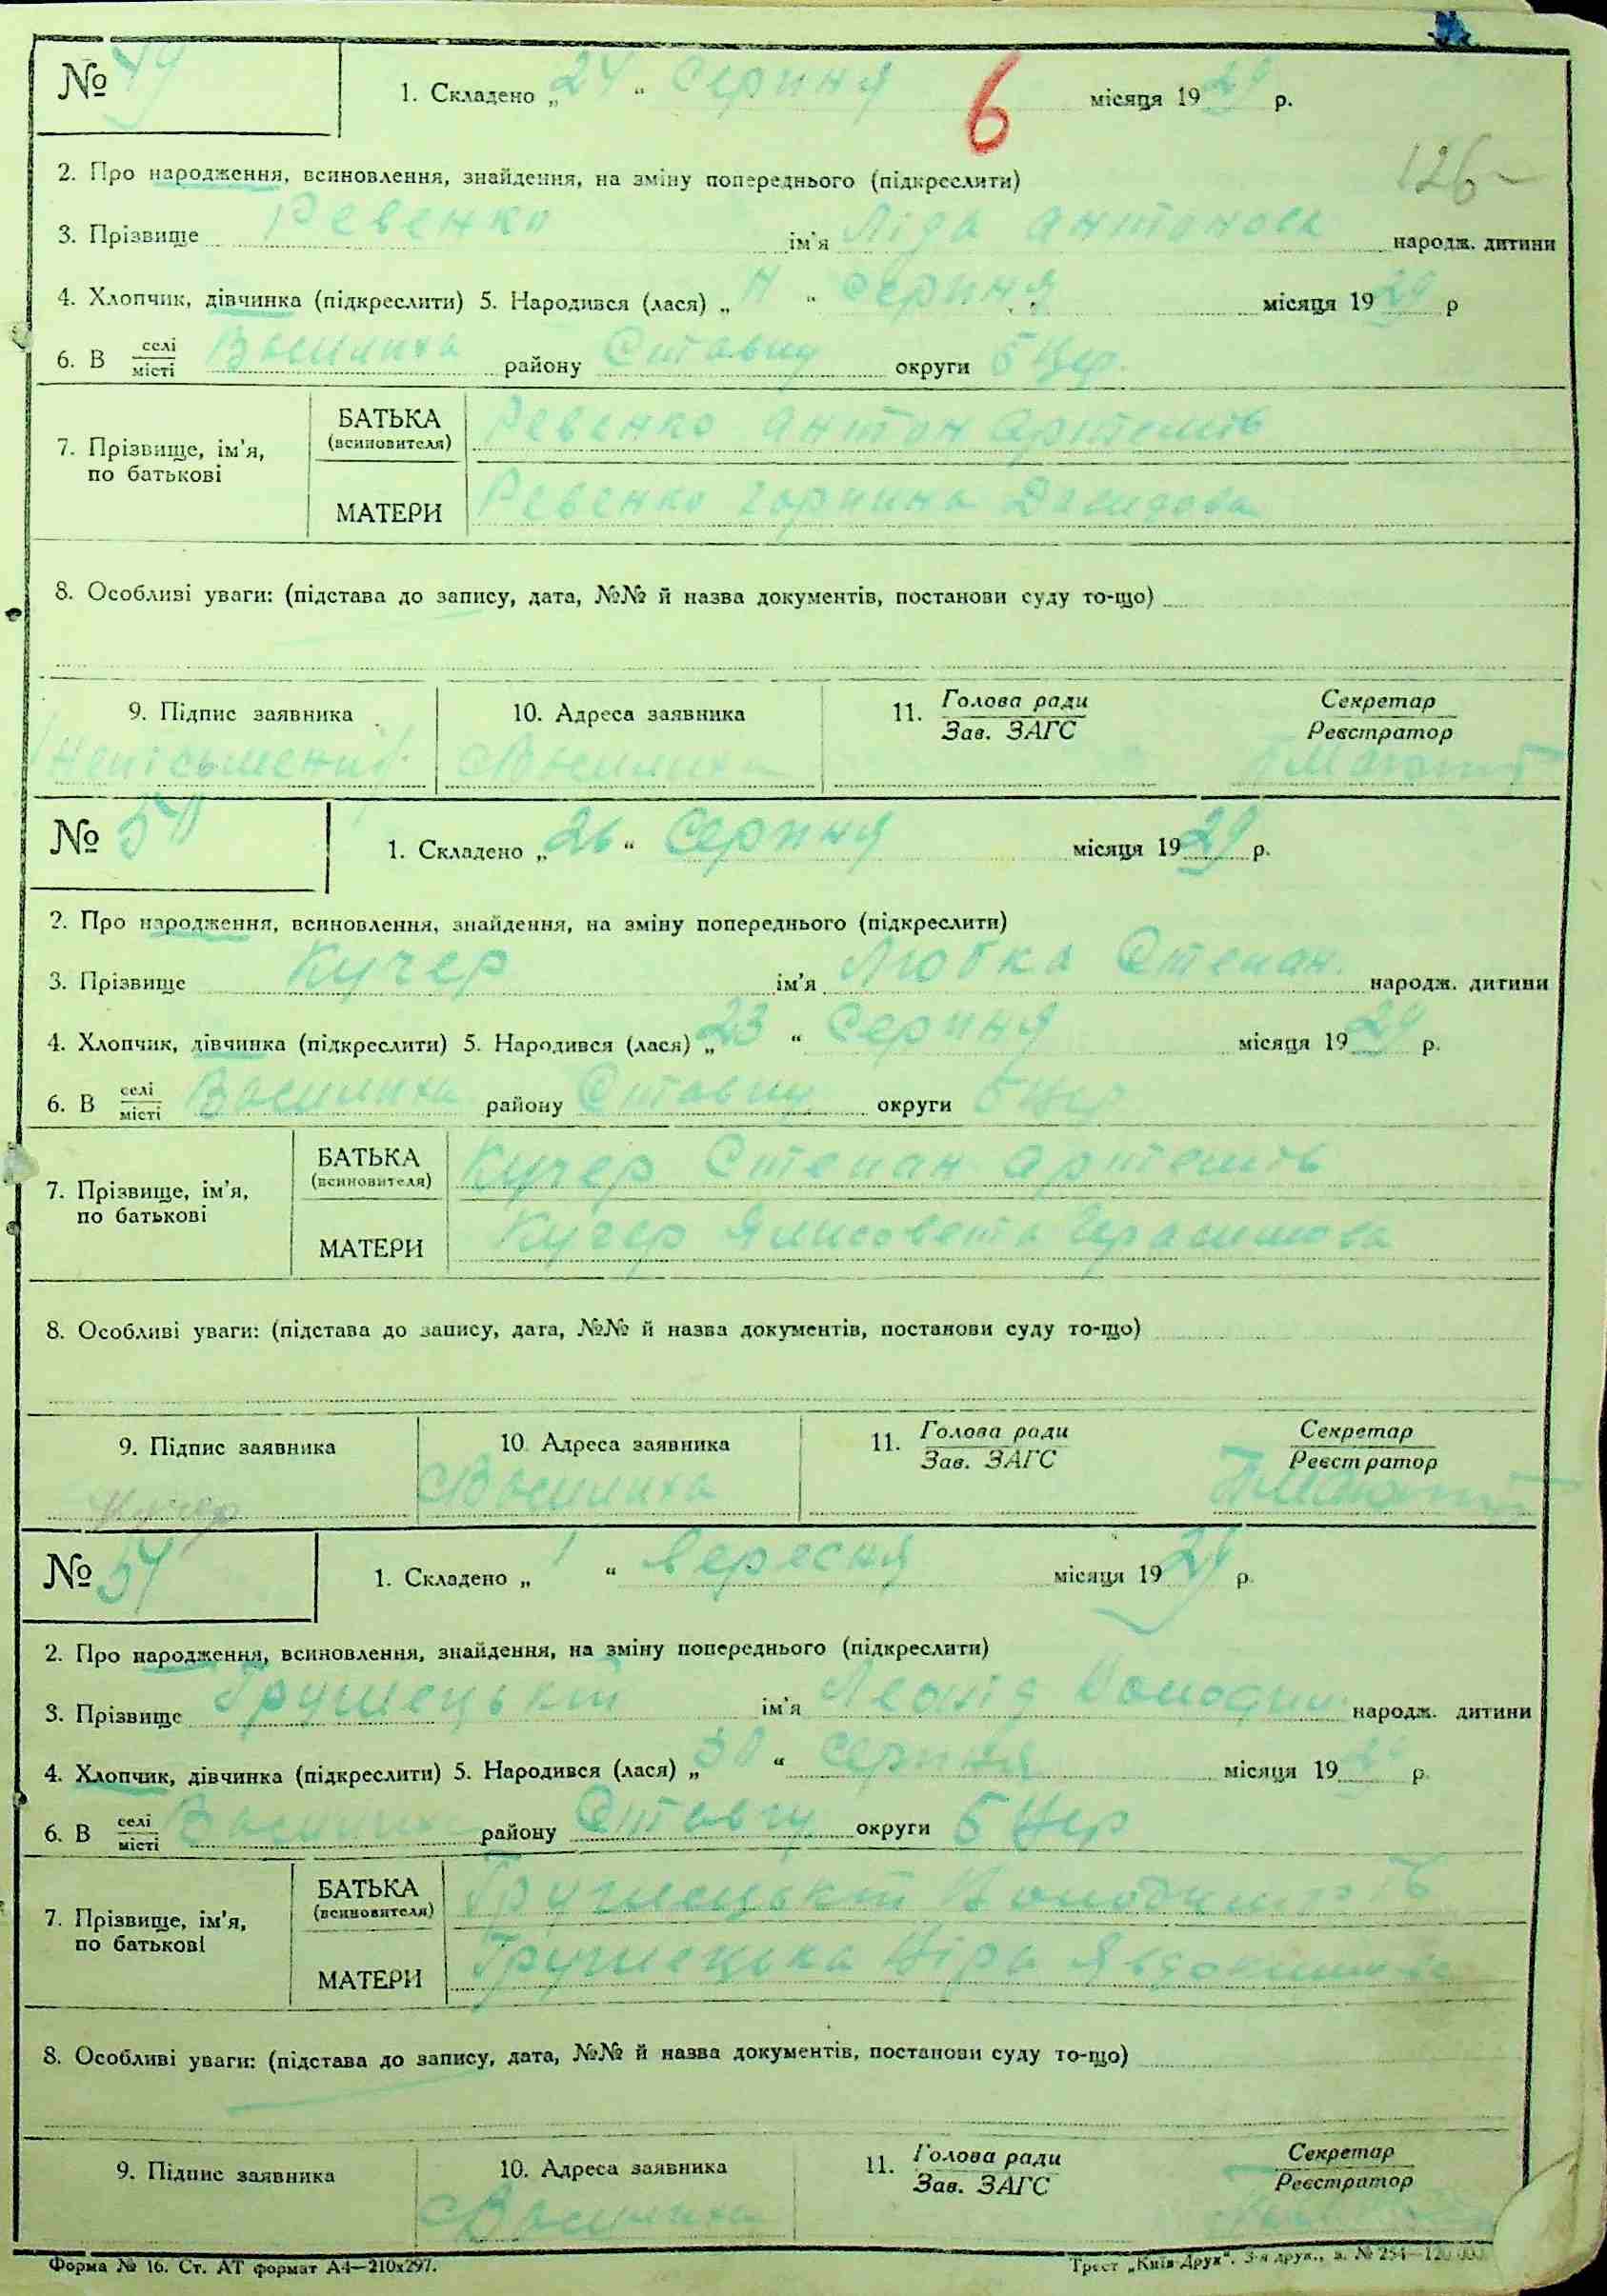 № 49
1. Складено „ 24 “ Серпня місяця 19 29 р.
6
126
2. Про народження, всиновлення, знайдення, на зміну попереднього (підкреслити)
3. Прізвище Ревенко ім'я Ліда Антонова народж. дитини
4. Хлопчик, дівчинка (підкреслити) 5. Народився (лася) „ “ Серпня місяця 19 29 р
6. В селі/місті Василиха району Ставищ округи БЦер.
7. Прізвище, ім'я, по батькові
БАТЬКА (всиновителя) Ревенко Антон Артемів
МАТЕРИ Ревенко Горпина Давидова
8. Особливі уваги: (підстава до запису, дата, №№ й назва документів, постанови суду то-що)
9. Підпис заявника 10. Адреса заявника 11. Голова ради/Зав. ЗАГС Секретар/Реєстратор
Неписьмений с Василиха
№ 50
1. Складено „ 26 “ Серпня місяця 19 29 р.
2. Про народження, всиновлення, знайдення, на зміну попереднього (підкреслити)
3. Прізвище Кучер ім'я Любка Степан. народж. дитини
4. Хлопчик, дівчинка (підкреслити) 5. Народився (лася) „ 23 “ Серпня місяця 19 29 р.
6. В селі/місті Василиха району Ставищ округи БЦер
7. Прізвище, ім'я, по батькові
БАТЬКА (всиновителя) Кучер Степан Артемів
МАТЕРИ Кучер Ялисовета Герасимова
8. Особливі уваги: (підстава до запису, дата, №№ й назва документів, постанови суду то-що)
9. Підпис заявника 10. Адреса заявника 11. Голова ради/Зав. ЗАГС Секретар/Реєстратор
Кучер с Василиха
№ 51
1. Складено „ 1 “ Вересня місяця 19 29 р.
2. Про народження, всиновлення, знайдення, на зміну попереднього (підкреслити)
3. Прізвище Грушецький ім'я Леонід Володим. народж. дитини
4. Хлопчик, дівчинка (підкреслити) 5. Народився (лася) „ 30 “ Серпня місяця 19 29 р.
6. В селі/місті Василиха району Ставищ округи БЦер
7. Прізвище, ім'я, по батькові
БАТЬКА (всиновителя) Грушецький
МАТЕРИ Грушецька Віра Явдокимова
8. Особливі уваги: (підстава до запису, дата, №№ й назва документів, постанови суду то-що)
9. Підпис заявника 10. Адреса заявника 11. Голова ради/Зав. ЗАГС Секретар/Реєстратор
с Василиха
Форма № 16. Ст. АТ формат А4—210х297. Трест „Київ-Друк“. 3-я друк., з. № 254—120.000